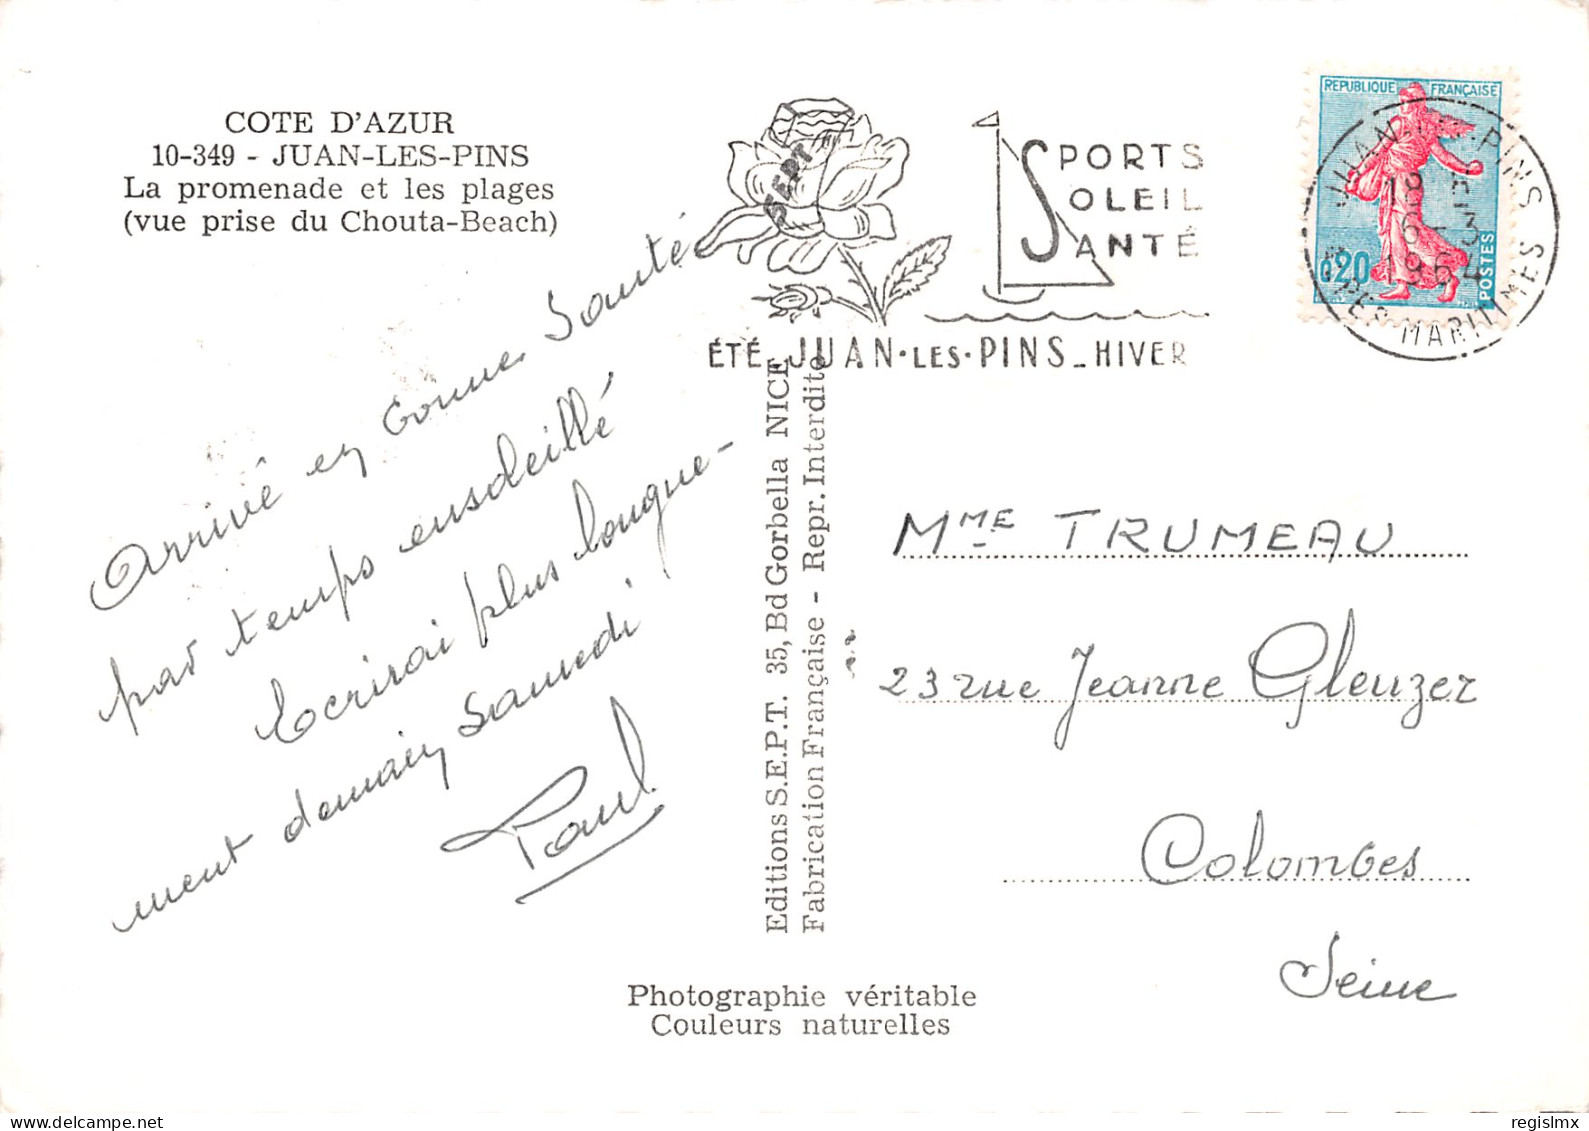 COTE D'AZUR
10-349 - JUAN-LES-PINS
La promenade et les plages
(vue prise du Chouta-Beach)
Arrivé en bonne Santé
par temps ensoleillé
Ecrirai plus longue-
ment demain Samedi
Paul
SEPT
SPORTS
SOLEIL
SANTÉ
ÉTÉ JUAN·LES·PINS - HIVER
REPUBLIQUE FRANÇAISE
0,20
POSTES
JUAN-LES-PINS
18 H
6-3
1964
ALPES-MARITIMES
Editions S.E.P.T. 35, Bd Gorbella NICE
Fabrication Française - Repr. Interdite
MME TRUMEAU
23 rue Jeanne Gleuzer
Colombes
Seine
Photographie véritable
Couleurs naturelles
regislmx